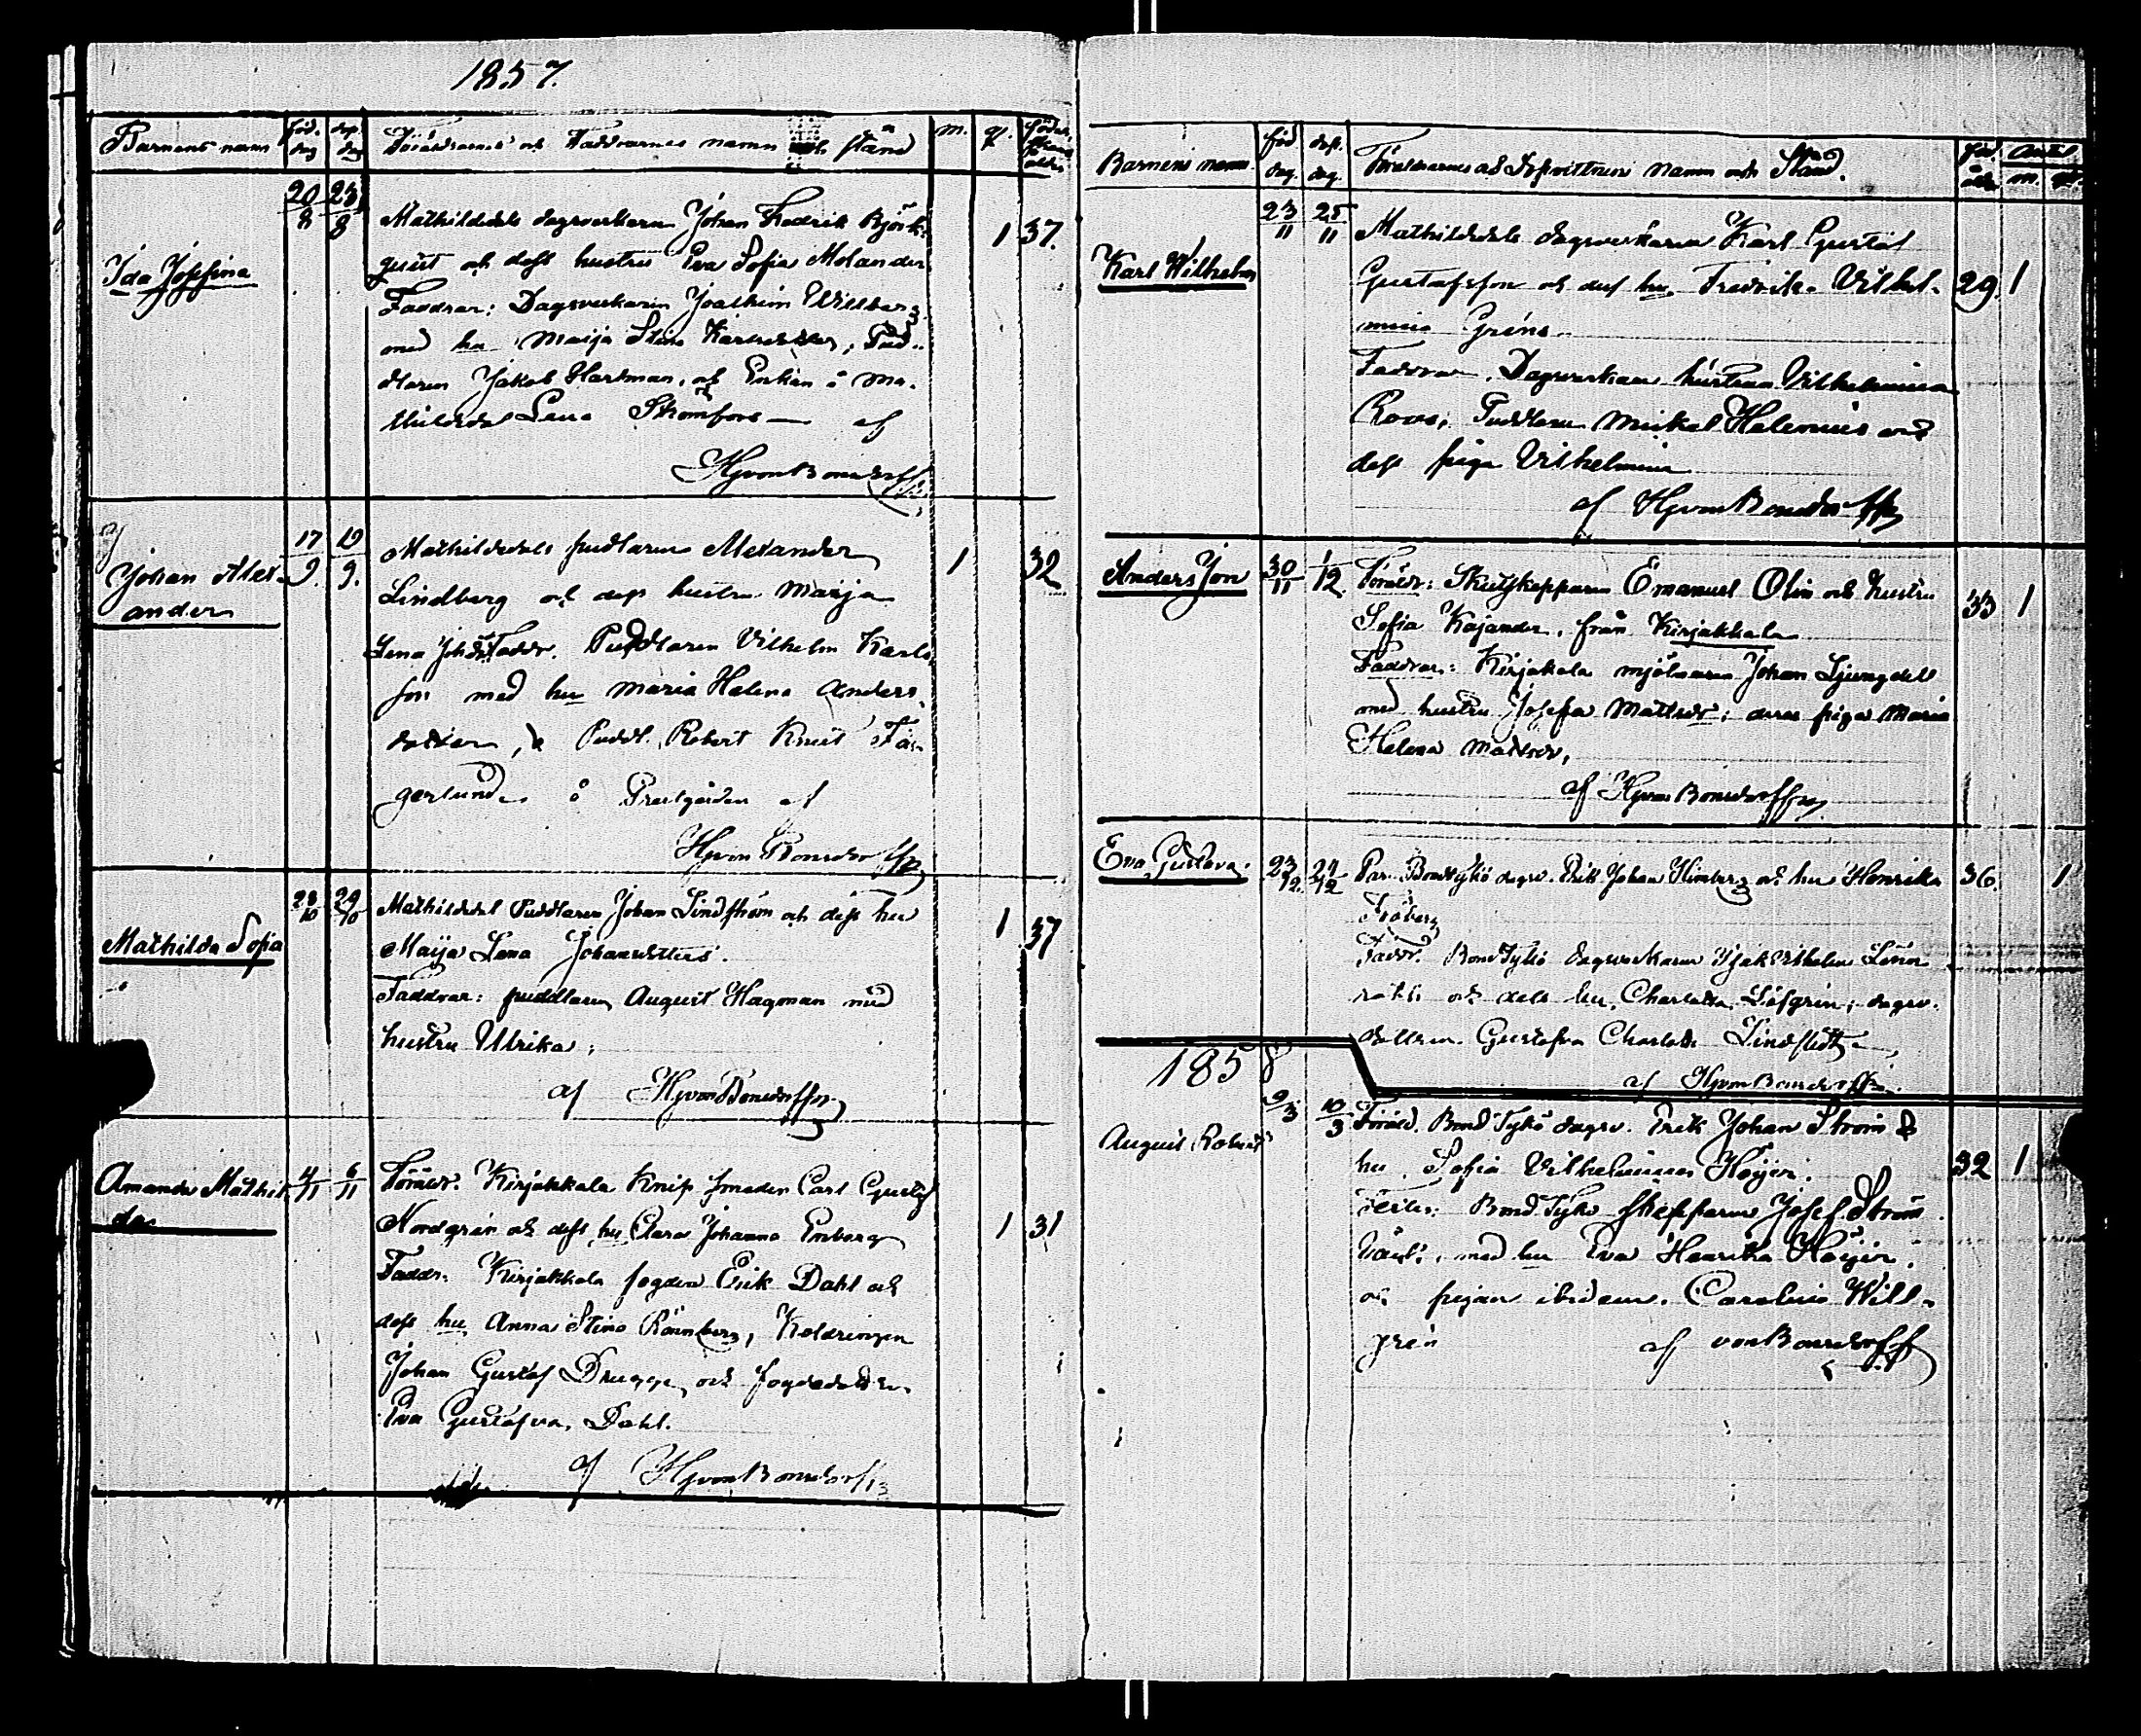 1857.
Barnens namn
föd. dag
dop. dag
Föräldrarnes och Faddrarnes namn och stånd
m.
q.
Ida Josefina
20/8 23/8
Mathildedals dagsverkaren Johan Fredrik Björk-
quist och dess hustru Eva Sofia Melander
Faddrar: Dagsverkaren Joachim Villberg
med hu Maija Stina
Jakob Hartman, och Enkan å Ma-
thildedal Lena Strömfors — af
HjvonBonsdorff
1 37.
Johan Alex-
ander
17/9. 19/9.
Mathildedals pudlaren Alexander
Lindberg och dess hustru Maija
Lena Johdr. Faddr. Puddlaren Vilhelm Karls
son med hu Maria Helena Anders
dotter, Puddl. Robert Knut Fa-
gerlund å Prestgården af
Hjvon Bonsdorff
1 32
Mathilda Sofia
28/10 29/10
Mathildedal Puddlaren Johan Lindström och dess hu
Maija Lena Johansdotter.
Faddrar: puddlaren August Hagman med
hustru Ulrika;
af HjvonBonsdorff
1 37
Amanda Mathil-
da
4/11 6/11
Föräldr. Kirjakkala Knip smeden Carl Gustaf
Nordgrén och dess hu Clara Johanna Enberg
Faddr. Kirjakkala fogden Erik Dahl och
dess hu Anna Stina Rönnberg, Koldrengen
Johan Gustaf Drugge, och fogdedottern
Eva Gustafva, Dahl.
af HjvonBonsdorff
1 31
Barnens namn
föd dag.
döp. dag.
Föräldrarnes och Dopvittnens namn och Stånd.
föd. ålder
Antal
m. q.
Karl Wilhelm
23/11 25/11
Mathildedals dagsverkaren Karl Gustaf
Gustafsson och dess hu. Fredrika Vilhel-
mina Gréns
Faddrar. Dagsverkare hustrun Vilhelmina
Roos, Puddlaren Mickel Helenius och
dess piga Vilhelmina
af HjvonBonsdorff
29. 1
Anders Jon
30/11 1/12
Föräldr: Skutskepparen Emanuel Olin och hustru
Sofia Kajander, från Kirjakkala
Faddrar: Kirjakala mjölnaren Johan Ljungdell
med hustru Josefa Mattsdr; deras piga Maria
Helena Mattsdr,
af HjvonBonsdorff
33 1
Eva Gustava.
23/12 24/12
Par. Bondtykö dagsv. Erik Johan Himberg och hu Henrika
Fröberg
Faddr. Bond Tykö dagsverkaren Isak Vilhelm Lönn
och dess hu. Charlotta Löfgren; dagsv.
dottren. Gustafva Charlotta Lindstedt
af HjvonBonsdorff.
36. 1
1858
August Robert
9/3 10/3
Föräld. Bond Tykö dagsv. Erik Johan Ström &
hu. Sofia Vilhelmina Höijer.
Testes: Bond Tykö skepparen Josef Ström
med hu Eva Henrika Höijer.
och pigan ibidem. Carolina Will-
grén af vonBonsdorff
32 1